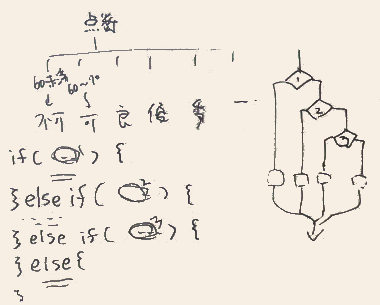 点数
60未満 60~70
不可 可 良 優 秀
if( 1 ) {
} else if( 2 ) {
} else if( 3 ) {
} else {
}
1
2
3